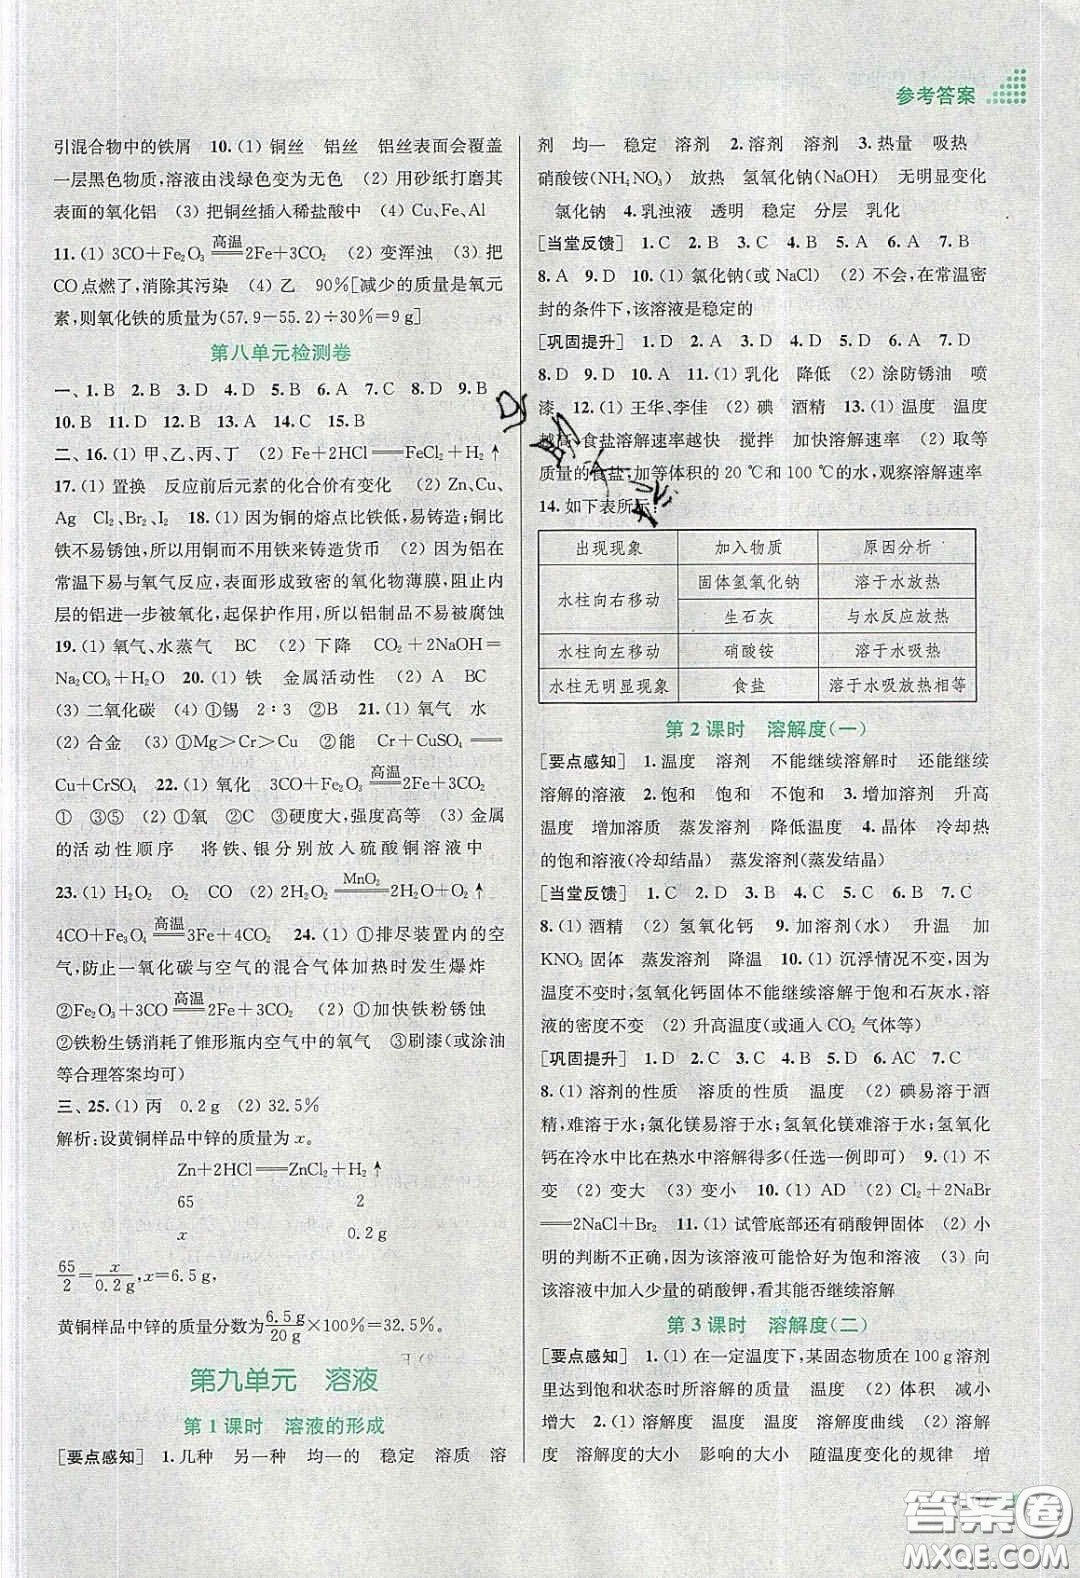 参考答案
引混合物中的铁屑 10.(1) 铜丝 铝丝 铝丝表面会覆盖
一层黑色物质,溶液由浅绿色变为无色 (2) 用砂纸打磨其
表面的氧化铝 (3) 把铜丝插入稀盐酸中 (4) Cu、Fe、Al
11.(1) 3CO+Fe₂O₃ 高温══ 2Fe+3CO₂ (2) 变浑浊 (3) 把
CO点燃了,消除其污染 (4) 乙 90%[减少的质量是氧元
素,则氧化铁的质量为(57.9-55.2)÷30%=9 g]
第八单元检测卷
一、1.B 2.B 3.D 4.D 5.D 6.A 7.C 8.D 9.B
10.B 11.D 12.B 13.A 14.C 15.B
二、16.(1) 甲、乙、丙、丁 (2) Fe+2HCl══FeCl₂+H₂↑
17.(1) 置换 反应前后元素的化合价有变化 (2) Zn、Cu、
Ag Cl₂、Br₂、I₂ 18.(1) 因为铜的熔点比铁低,易铸造;铜比
铁不易锈蚀,所以用铜而不用铁来铸造货币 (2) 因为铝在
常温下易与氧气反应,表面形成致密的氧化物薄膜,阻止内
层的铝进一步被氧化,起保护作用,所以铝制品不易被腐蚀
19.(1) 氧气、水蒸气 BC (2) 下降 CO₂+2NaOH══
Na₂CO₃+H₂O 20.(1) 铁 金属活动性 (2) A BC
(3) 二氧化碳 (4) ①锡 2∶3 ②B 21.(1) 氧气 水
(2) 合金 (3) ①Mg>Cr>Cu ②能 Cr+CuSO₄══
Cu+CrSO₄ 22.(1) 氧化 3CO+Fe₂O₃ 高温══ 2Fe+3CO₂
① ③⑤ (2) ①氧 ②C ③硬度大,强度高等 (3) 金属
的活动性顺序 将铁、银分别放入硫酸铜溶液中
23.(1) H₂O₂ O₂ CO (2) 2H₂O₂ MnO₂══ 2H₂O+O₂↑
4CO+Fe₃O₄ 高温══ 3Fe+4CO₂ 24.(1) ①排尽装置内的空
气,防止一氧化碳与空气的混合气体加热时发生爆炸
②Fe₂O₃+3CO 高温══ 2Fe+3CO₂ (2) ①加快铁粉锈蚀
②铁粉生锈消耗了锥形瓶内空气中的氧气 ③刷漆(或涂油
等合理答案均可)
三、25.(1) 丙 0.2 g (2) 32.5%
解析:设黄铜样品中锌的质量为 x。
Zn+2HCl══ZnCl₂+H₂↑
65 2
x 0.2 g
65/2=x/0.2 g,x=6.5 g,
黄铜样品中锌的质量分数为6.5 g/20 g×100%=32.5%。
第九单元 溶液
第 1 课时 溶液的形成
[要点感知] 1.几种 另一种 均一的 稳定 溶质 溶
剂 均一 稳定 溶剂 2.溶剂 溶剂 溶剂 3.热量 吸热
硝酸铵(NH₄NO₃) 放热 氢氧化钠(NaOH) 无明显变化
氯化钠 4.乳浊液 透明 稳定 分层 乳化
[当堂反馈] 1.C 2.B 3.C 4.B 5.A 6.A 7.B
8.A 9.D 10.(1) 氯化钠(或 NaCl) (2) 不会,在常温密
封的条件下,该溶液是稳定的
[巩固提升] 1.D 2.A 3.D 4.D 5.D 6.A 7.D
8.D 9.D 10.A 11.(1) 乳化 降低 (2) 涂防锈油 喷
漆 12.(1) 王华、李佳 (2) 碘 酒精 13.(1) 温度 温度
越高,食盐溶解速率越快 搅拌 加快溶解速率 (2) 取等
质量的食盐,加等体积的 20 ℃和 100 ℃的水,观察溶解速率
14.如下表所示:
出现现象 加入物质 原因分析
水柱向右移动 固体氢氧化钠 溶于水放热
生石灰 与水反应放热
水柱向左移动 硝酸铵 溶于水吸热
水柱无明显现象 食盐 溶于水吸放热相等
第 2 课时 溶解度(一)
[要点感知] 1.温度 溶剂 不能继续溶解时 还能继续
溶解的溶液 2.饱和 饱和 不饱和 3.增加溶剂 升高
温度 增加溶质 蒸发溶剂 降低温度 4.晶体 冷却热
的饱和溶液(冷却结晶) 蒸发溶剂(蒸发结晶)
[当堂反馈] 1.C 2.D 3.B 4.C 5.D 6.C 7.C
8.(1) 酒精 (2) 氢氧化钙 9.加溶剂(水) 升温 加
KNO₃ 固体 蒸发溶剂 降温 10.(1) 沉浮情况不变,因为
温度不变时,氢氧化钙固体不能继续溶解于饱和石灰水,溶
液的密度不变 (2) 升高温度(或通入 CO₂ 气体等)
[巩固提升] 1.D 2.C 3.C 4.D 5.D 6.AC 7.C
8.(1) 溶剂的性质 溶质的性质 温度 (2) 碘易溶于酒
精,难溶于水;氯化镁易溶于水;氢氧化镁难溶于水;氢氧化
钙在冷水中比在热水中溶解得多(任选一例即可) 9.(1) 不
变 (2) 变大 (3) 变小 10.(1) AD (2) Cl₂+2NaBr
══2NaCl+Br₂ 11.(1) 试管底部还有硝酸钾固体 (2) 小
明的判断不正确,因为该溶液可能恰好为饱和溶液 (3) 向
该溶液中加入少量的硝酸钾,看其能否继续溶解
第 3 课时 溶解度(二)
[要点感知] 1.(1) 在一定温度下,某固态物质在 100 g溶剂
里达到饱和状态时所溶解的质量 温度 (2) 体积 减小
增大 2.(1) 溶解度 温度 温度 溶解度曲线 (2) 溶解
度 溶解度的大小 影响的大小 随温度变化的规律 增
答案圈
MXQE.COM